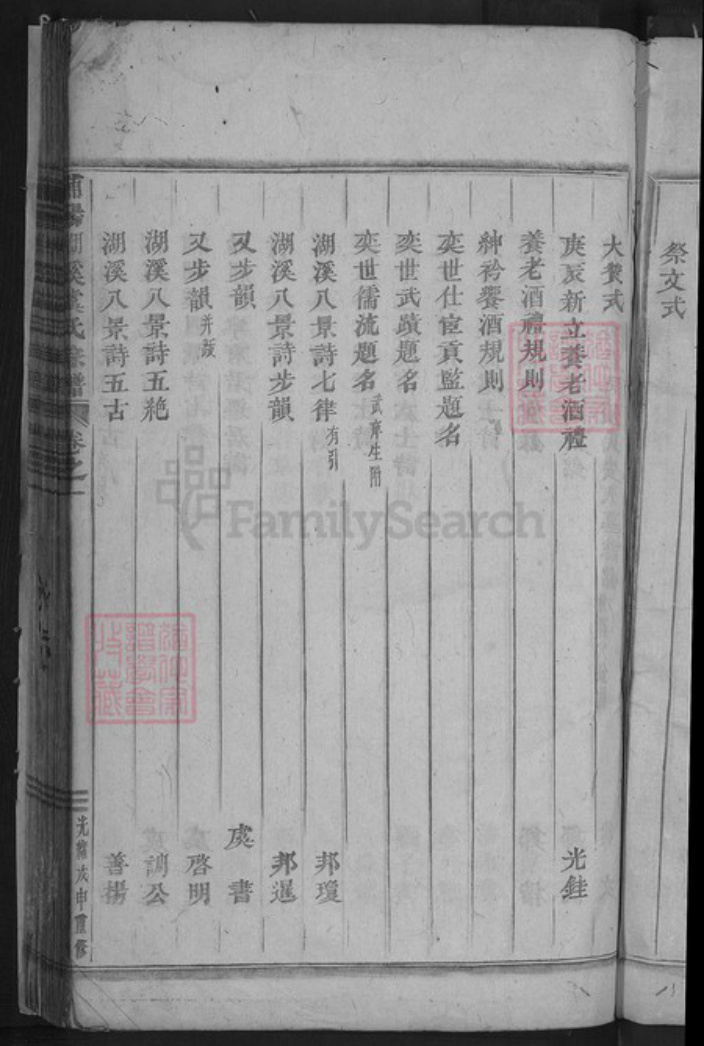 祭文式
大贊式
庚辰新立養老酒禮 光銈
養老酒禮規則
紳衿饗酒規則
奕世仕宦貢監題名
奕世武蹟題名
奕世儒流題名 武庠生附
湖溪八景詩七律 有引 邦瓊
湖溪八景詩步韻 邦暹
又步韻 虞書
又步韻 并跋 啓明
湖溪八景詩五絶 詢公
湖溪八景詩五古 善揚
湖溪 氏宗譜 卷之
光緒戊申重修
FamilySearch